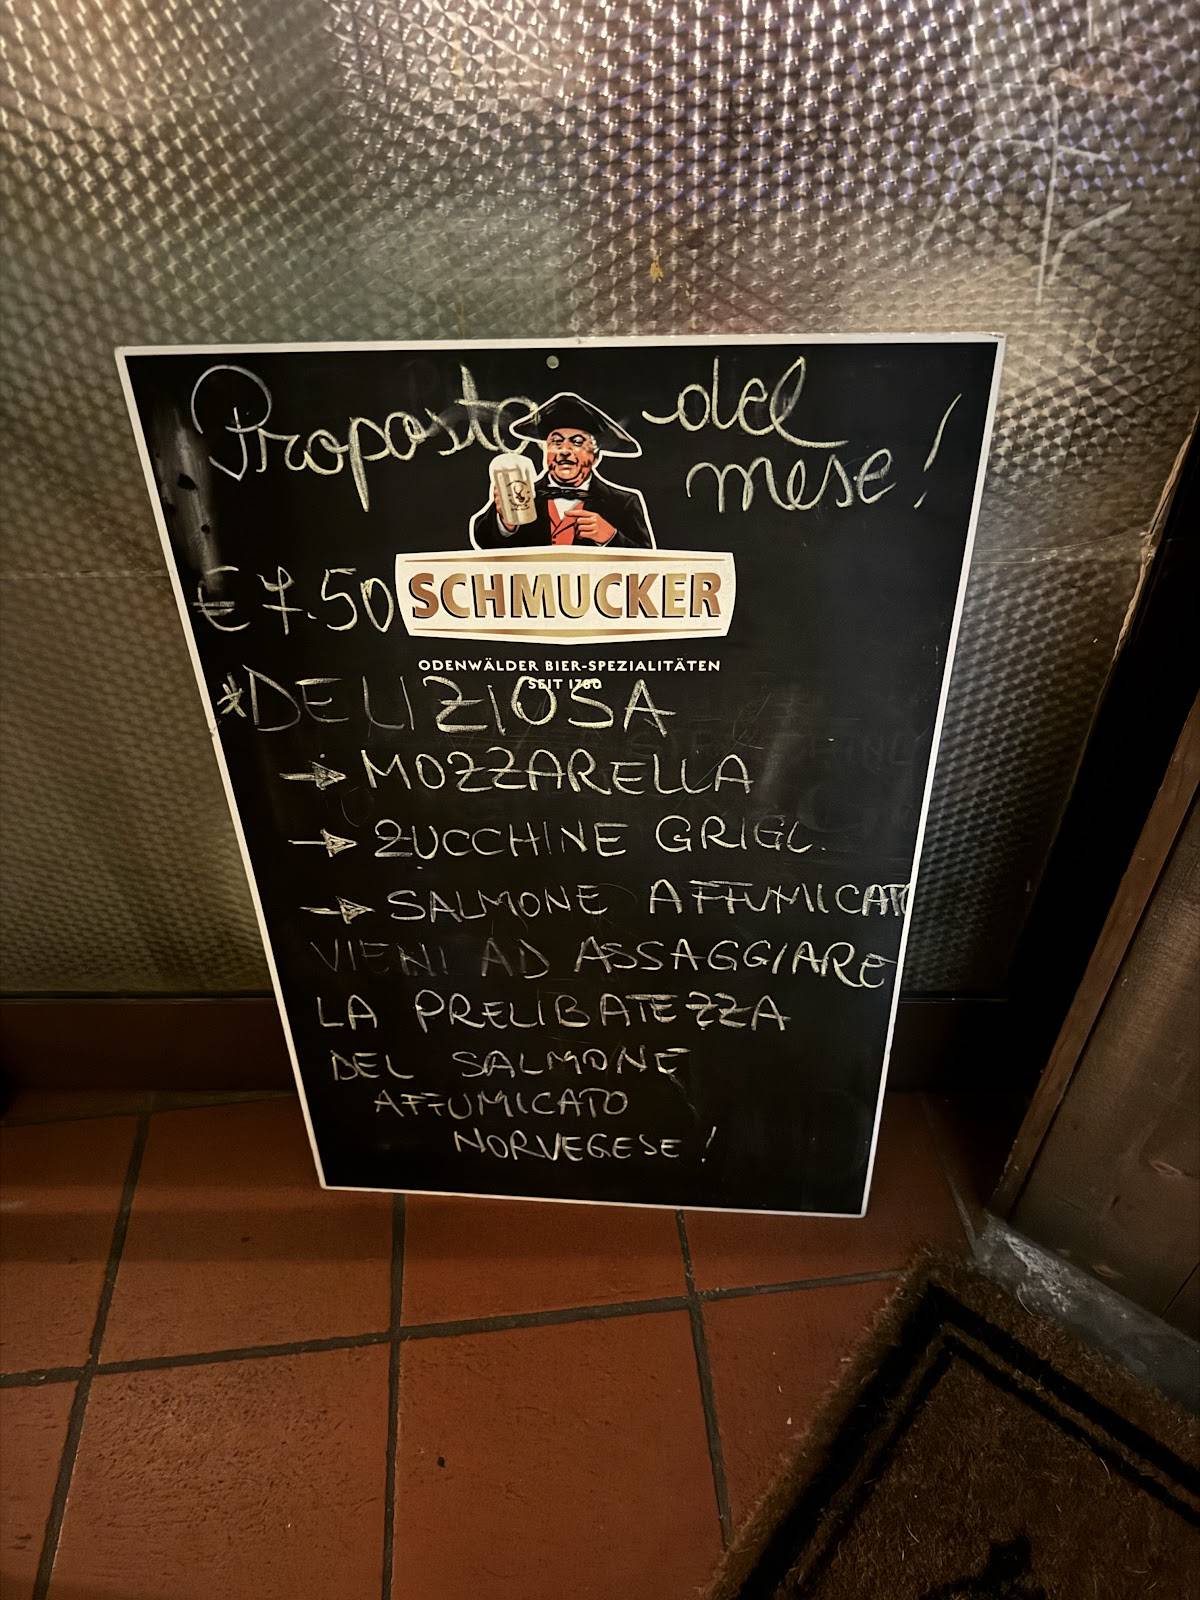 Proposta del
mese!
€ 7.50
SCHMUCKER
ODENWÄLDER BIER-SPEZIALITÄTEN
SEIT 1780
*DELIZIOSA
→ MOZZARELLA
→ ZUCCHINE GRIGL.
→ SALMONE AFFUMICATO
VIENI AD ASSAGGIARE
LA PRELIBATEZZA
DEL SALMONE
AFFUMICATO
NORVEGESE!